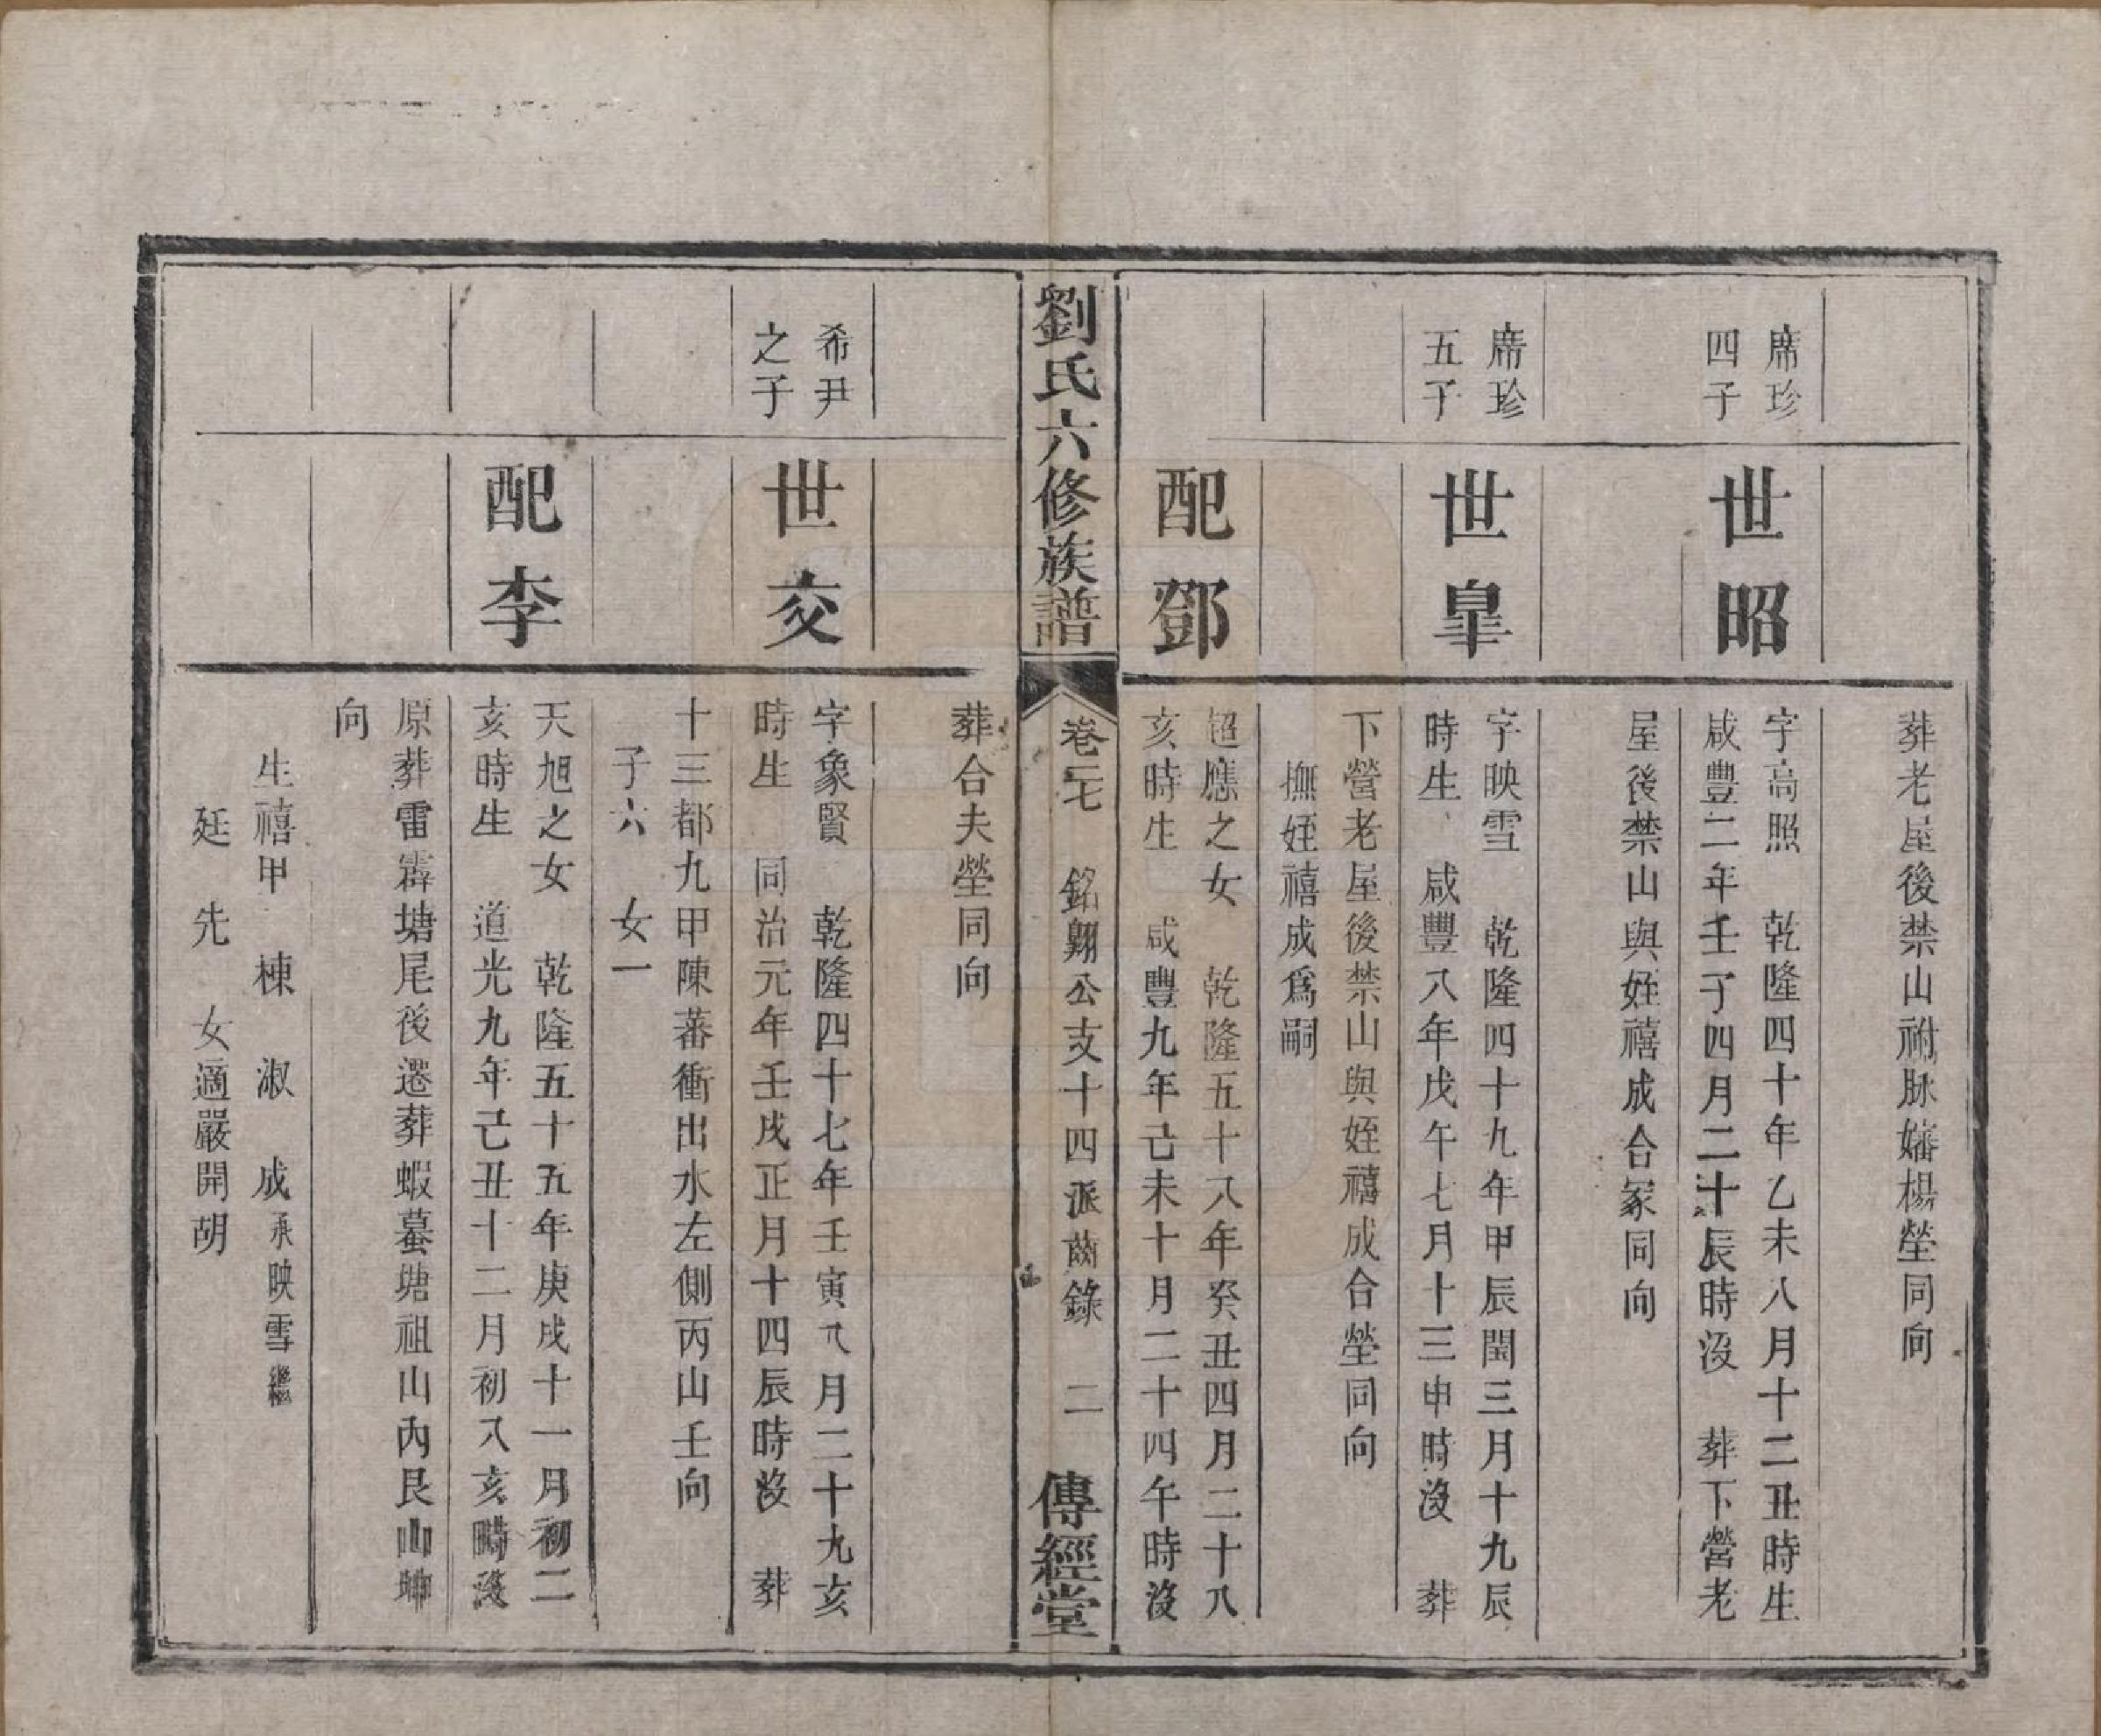 葬老屋後禁山祔脉嬸楊塋同向
席珍
四子
世昭
字高照　乾隆四十年乙未八月十二丑時生
咸豐二年壬子四月二十辰時沒　葬下營老
屋後禁山與姪禧成合冢同向
席珍
五子
世臯
字映雪　乾隆四十九年甲辰閏三月十九辰
時生　咸豐八年戊午七月十三申時沒　葬
下營老屋後禁山與姪禧成合塋同向
撫姪禧成爲嗣
配鄧
超應之女　乾隆五十八年癸丑四月二十八
亥時生　咸豐九年己未十月二十四午時沒
劉氏六修族譜
卷二七　銘翺公支十四派齒錄　二
傳經堂
葬合夫塋同向
希尹
之子
世交
字象賢　乾隆四十七年壬寅八月二十九亥
時生　同治元年壬戌正月十四辰時沒　葬
十三都九甲陳蕃衝出水左側丙山壬向
子六　女一
配李
天旭之女　乾隆五十五年庚戌十一月初二
亥時生　道光九年己丑十二月初八亥時沒
原葬雷霹塘尾後遷葬蝦蟇塘祖山內艮山坤
向
生禧甲　棟　淑　成承映雪繼
廷　先　女適嚴開胡